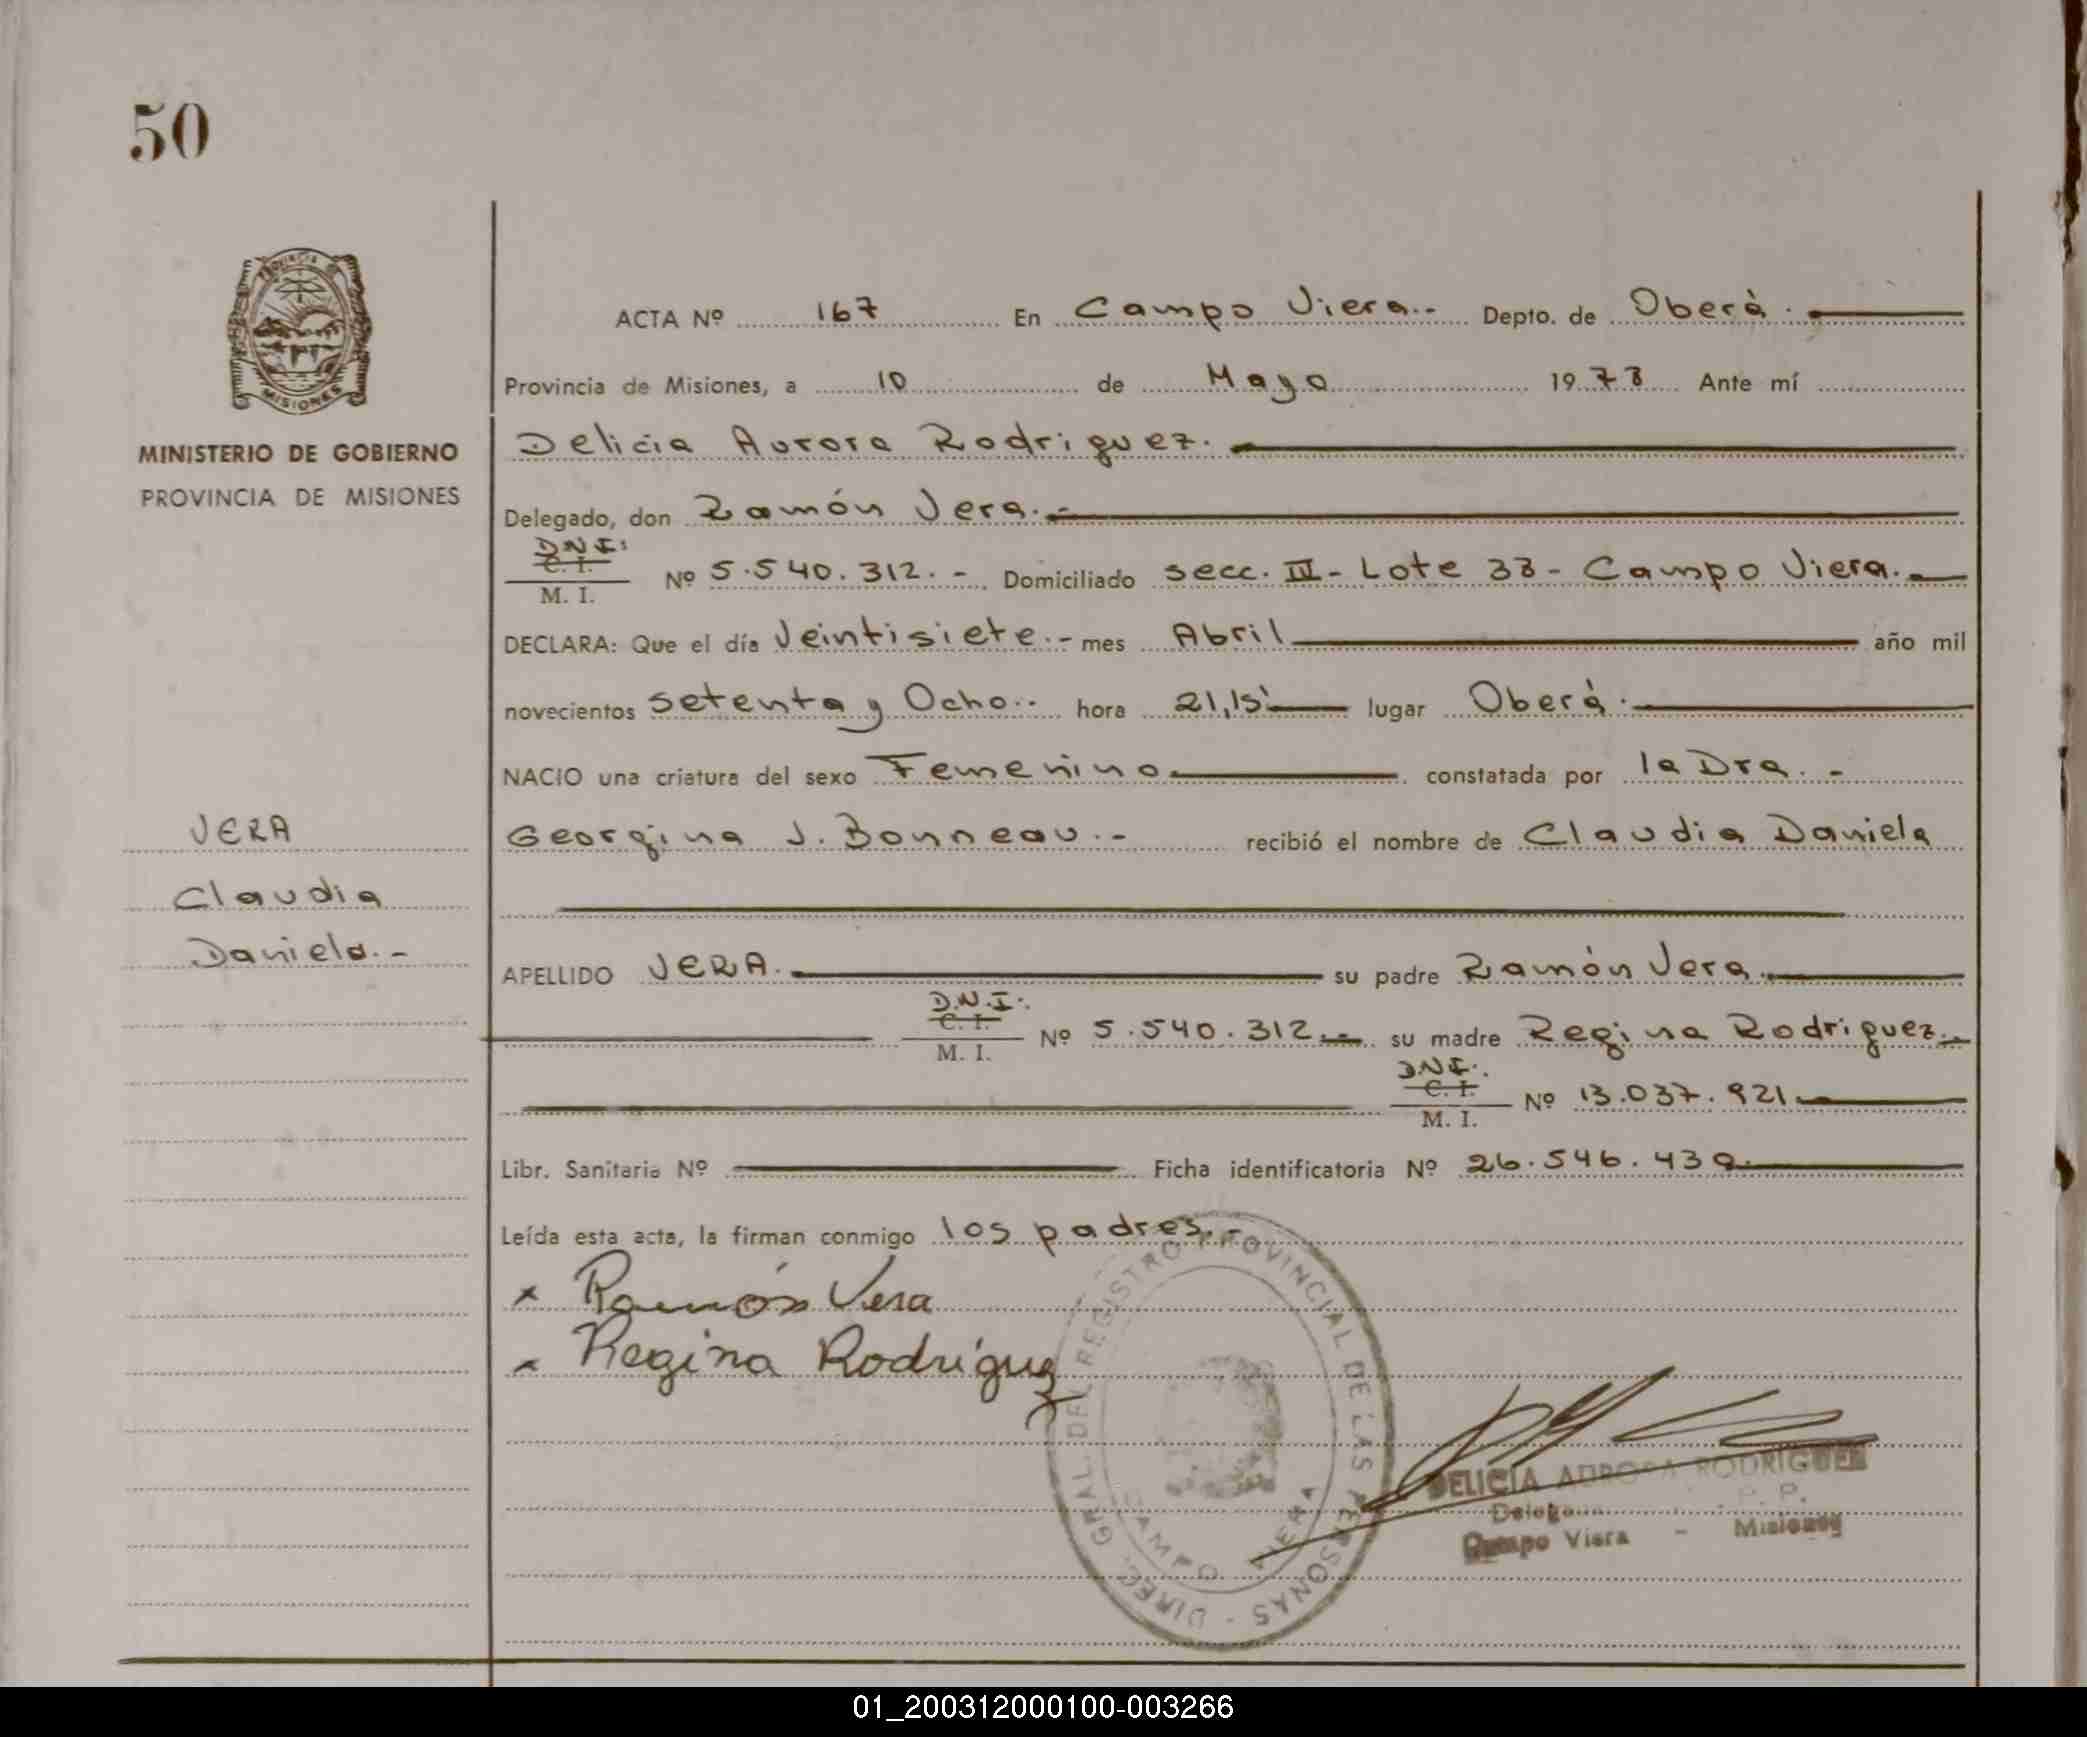 50
PROVINCIA DE
MISIONES
MINISTERIO DE GOBIERNO
PROVINCIA DE MISIONES
VERA
Claudia
Daniela.-
ACTA Nº 167 En Campo Viera.- Depto. de Oberá.
Provincia de Misiones, a 10 de Mayo 1978 Ante mí
Delicia Aurora Rodriguez.
Delegado, don Ramón Vera.-
D.N.I.
C. I.
M. I.
Nº 5.540.312.- Domiciliado secc. III - Lote 33 - Campo Viera.
DECLARA: Que el día Veintisiete.- mes Abril año mil
novecientos setenta y Ocho.. hora 21,15' lugar Oberá.
NACIO una criatura del sexo Femenino constatada por la Dra.-
Georgina J. Bonneau.- recibió el nombre de Claudia Daniela
APELLIDO VERA. su padre Ramón Vera.
D.N.I.
C. I.
M. I.
Nº 5.540.312.- su madre Regina Rodriguez.-
D.N.I.
C. I.
M. I.
Nº 13.037.921
Libr. Sanitaria Nº Ficha identificatoria Nº 26.546.439.
Leída esta acta, la firman conmigo los padres.-
x Ramón Vera
x Regina Rodriguez
DIREC. GRAL. DEL REGISTRO PROVINCIAL DE LAS PERSONAS -
CAMPO VIERA
DELICIA AURORA RODRIGUEZ
P. P.
Campo Viera - Misiones
01_200312000100-003266